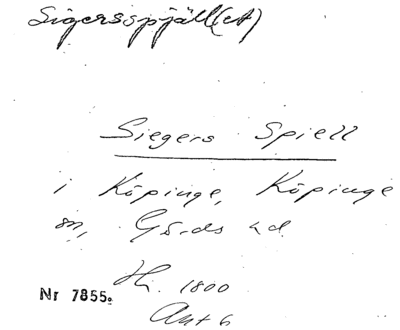 Sigersspjäll(et)
Siegers Spiell
i Köpinge, Köpinge
sn, Gärds hd
Hi. 1800
Akt 6
Nr 7855.